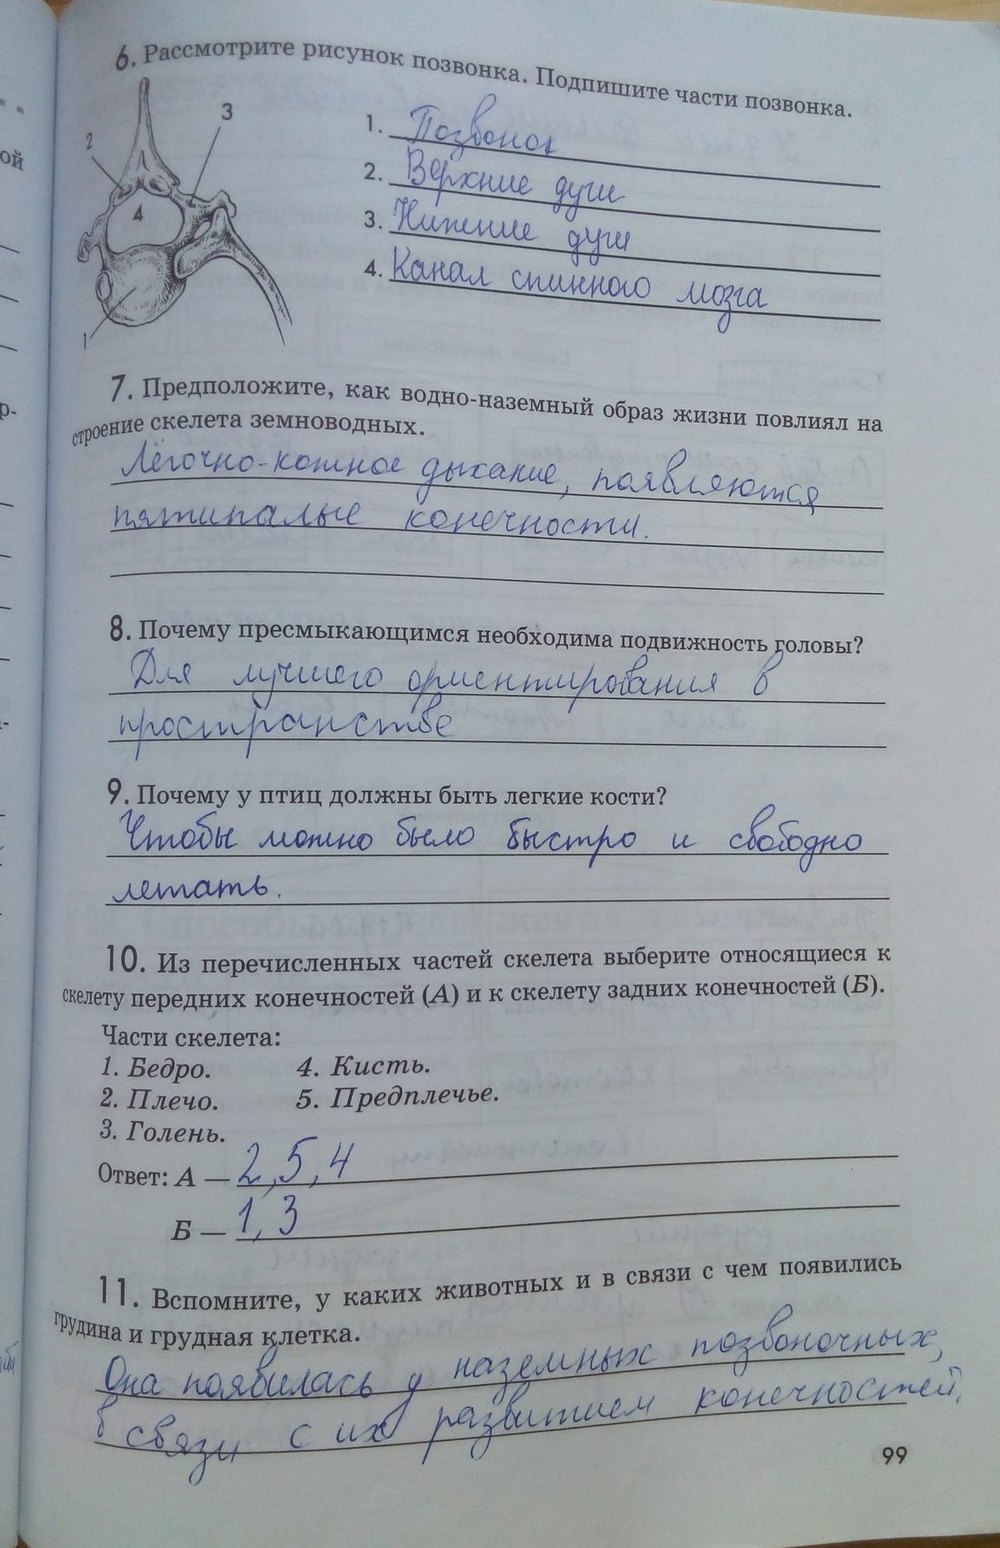 6. Рассмотрите рисунок позвонка. Подпишите части позвонка.
2
3
4
1
1. Позвонок
2. Верхние дуги
3. Нижние дуги
4. Канал спинного мозга
7. Предположите, как водно-наземный образ жизни повлиял на
строение скелета земноводных.
Лёгочно-кожное дыхание, появляются
пятипалые конечности.
8. Почему пресмыкающимся необходима подвижность головы?
Для лучшего ориентирования в
пространстве
9. Почему у птиц должны быть легкие кости?
Чтобы можно было быстро и свободно
летать.
10. Из перечисленных частей скелета выберите относящиеся к
скелету передних конечностей (А) и к скелету задних конечностей (Б).
Части скелета:
1. Бедро. 4. Кисть.
2. Плечо. 5. Предплечье.
3. Голень.
Ответ: А — 2, 5, 4
Б — 1, 3
11. Вспомните, у каких животных и в связи с чем появились
грудина и грудная клетка.
Она появилась у наземных позвоночных,
в связи с их развитием конечностей.
99